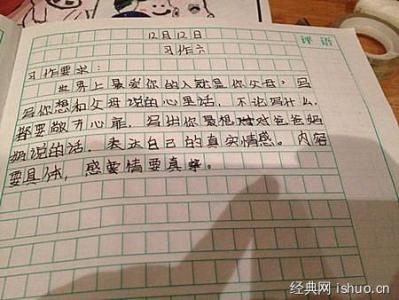 12月12日
评语
习作六
习作要求:
世界上最爱你的人就是你父母,写
写你想和父母说的心里话,不论写什么,
都要敞开心扉,写出你最想对爸爸妈
妈说的话,表达自己的真实情感。内容
要具体,感情要真挚。
经典网 ishuo.cn